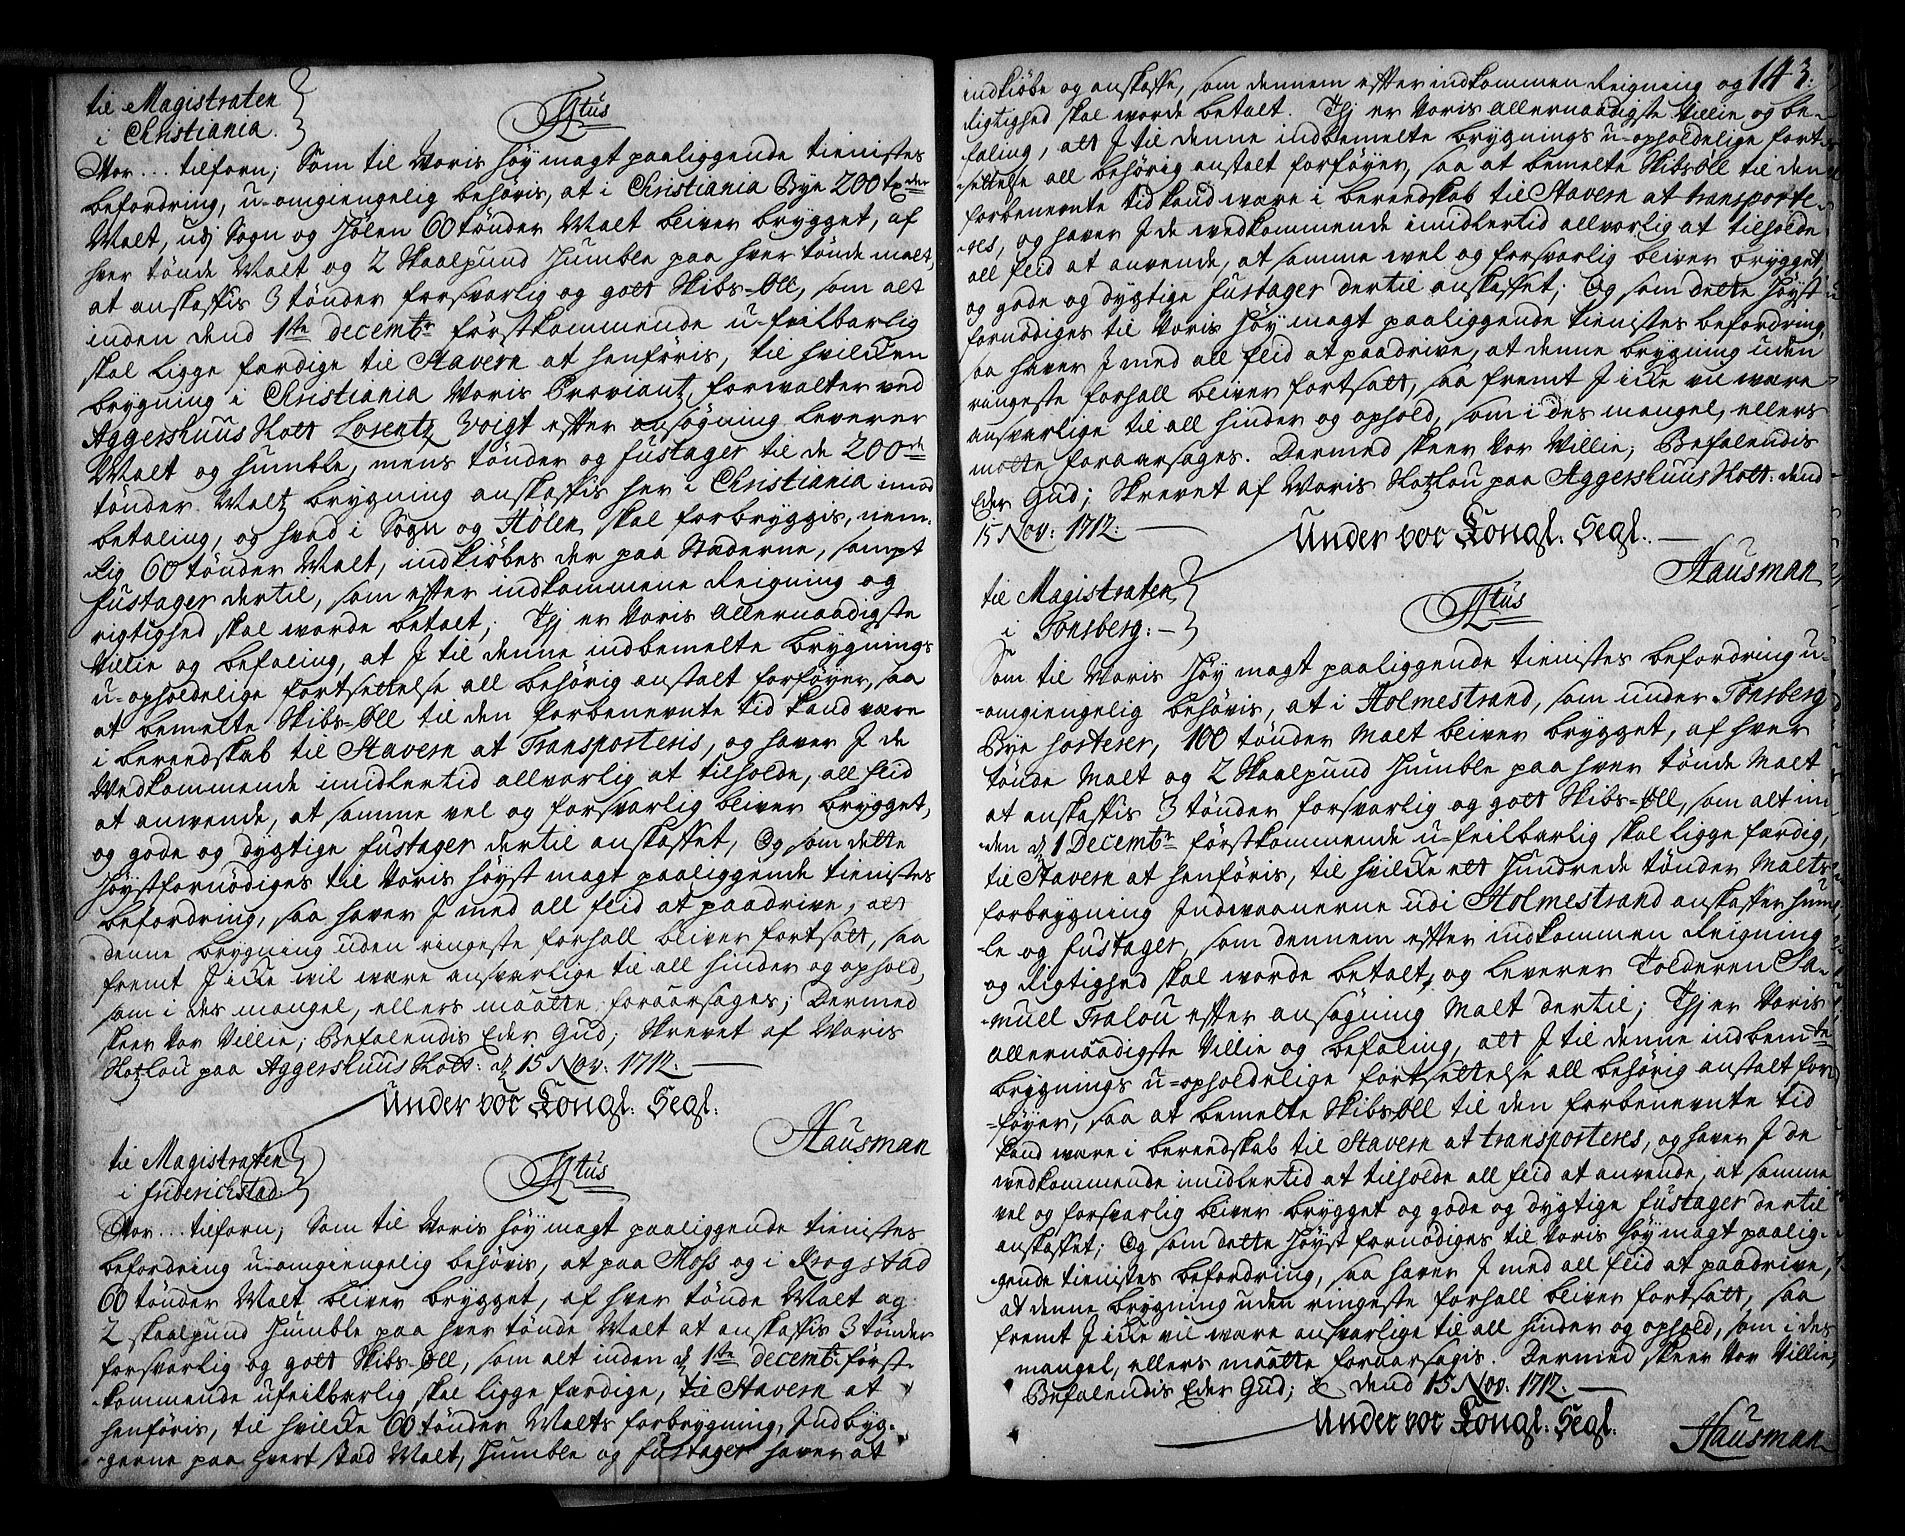 til Magistraten
i Christiania.
Titus
Vor... tilforn; Som til Voris Høy magt paaliggende tienistes
befordring, u-omgiengelig behøvis, at i Christiania Bye 200 tønder
Malt, udj Sogn og Hølen 60 tønder Malt bliver brygget, af
hver tønde Malt og 2 Skaalpund Humble paa hver tønde malt,
at anskaffis 3 tønder forsvarlig og gott Skibs-Øll, som alt
inden dend 1ste decembr førstkommende u-feilbarlig
skal ligge færdige til Stavern at henføris, til hvilcken
brygning i Christiania Voris Proviantz forvalter ved
Aggershuus Slott Lorentz Voigt efter ansøgning leverer
Malt og Humble, mens tønder og fustager til de 200de
tønder Maltz brygning anskaffis her i Christiania imod
betaling, og hvad i Sogn og Hølen skal forbryggis, nem-
lig 60 tønder Malt, indkiøbes der paa Stæderne, sampt
fustager dertil, som efter indkommene Reigning og
rigtighed skal worde betalt; Thj er Voris allernaadigste
Villie og befaling, at I til denne indbemelte brygnings
u-opholdelige fortsettelse all behørig anstalt forføyer, saa
at bemelte Skibs-Øll til den forbenevnte tid kand være
i berendskab til Stavern at Transporteris, og haver I de
Vedkommende imidlertid allvorlig at tilholde, all flid
at anvende, at samme vel og forsvarlig bliver brygget,
og gode og dygtige fustager dertil anskaffet, Og som dette
Høystfornødiges til Voris høyst magt paaliggende tienistes
befordring, saa haver I med all flid at paadrive, att
denne brygning uden ringeste forhall bliver fortsatt, saa
fremt I icke vil være ansvarlige til all hinder og ophold,
som i des mangel, ellers maatte foraarsages; Dermed
skeer Vor Villie; Befalendis Eder Gud; Skrevet af Voris
Slotzlov paa Aggershuus Slott: d 15 Nov: 1712.
Under vor Kongl: Segl:
Hausman
til Magistraten
i friderichstad
Titus
Vor... tilforn; Som til Voris Høy magt paaliggende tienistes
befordring u-omgiengelig behøvis, at paa Moss og i Krogstad
60 tønder Malt bliver brygget, af hver tønde Malt og
2 skaalpund Humble paa hver tønde Malt at anskaffis 3 tønder
forsvarlig og gott Skibs-Øll, som alt inden d 1ste decemb: først-
kommende ufeilbarlig skal ligge færdige, til Stavern at
henføris, til hvilcke 60 tønder Malts forbrygning, Indbyg-
gerne paa hvert stæd Malt, Humble og fustager haver at
143.
indkiøbe og anskaffe, som dennem efter indkommen Reigning og
Rigtighed skal worde betalt. Thj er Voris allernaadigste Villie og be-
faling, att I til denne indbemelte brygnings u-opholdelige fort-
settelse all behørig anstalt forføyer, saa at bemelte Skibsøll til den
forbenevnte tid kand være i berendskab til Stavern at transporte-
res, og haver I de wedkommende imidlertid allvorlig at tilholde
all flid at anvende, at samme wel og forsvarlig bliver brygget,
og gode og dygtige fustager dertil anskaffet; Og som dette Høyst
fornødiges til Voris Høy magt paaliggende tienistes befordring,
saa haver I med all flid at paadrive, at denne brygning uden
ringeste forhall bliver fortsatt, saa fremt I icke vil være
ansvarlige til all hinder og ophold, som i des mangel, ellers
matte foraarsages. Dermed skeer Vor Villie; Befalendis
Eder Gud; Skrevet af Voris Slotzlov paa Aggershuus Slott: dend
15 Nov: 1712.
Under vor Kongl: Segl:
Hausman
til Magistraten
i Tønsberg:
Titus
Som til Voris Høy magt paaliggende tienistes befordring u-
omgiengelig behøvis, at i Holmestrand, som under Tønsberg
Bye sorterer, 100 tønder Malt bliver brygget, af hver
tønde Malt og 2 Skaalpund Humble paa hver tønde Malt
at anskaffis 3 tønder forsvarlig og gott Skibs-Øll, som alt in-
den d 1 Decembr førstkommende u-feilbarlig skal ligge færdig,
til Stavern at henføris, til hvilcke ett Hundrede tønder Malts
forbrygning Indvaanerne udi Holmestrand anskaffer humb-
le og fustager, som dennem efter indkommen Reigning
og Rigtighed skal worde betalt, og leverer Tolderen Sa-
muel Tralou efter ansøgning Malt dertil; Thj er Voris
allernaadigste Villie og befaling, att I til denne indbemte
brygnings u-opholdelige fortsettelse all behørig anstalt for-
føyer, saa at bemelte Skibsøll til den forbenevnte tid
kand være i berendskab til Stavern at transporteres, og haver I de
wedkommende imidlertid at tilholde all flid at anvende, at samme
vel og forsvarlig bliver brygget og gode og dygtige fustager dertil
anskaffet; Og som dette Høyst fornødiges til Voris Høy magt paalig-
gende tienistes befordring, saa haver I med all flid at paadrive,
at denne brygning uden ringeste forhall bliver fortsatt, saa
fremt I icke vil være ansvarlige til all hinder og ophold, som i des
mangel, ellers maatte foraarsagis. Dermed skeer Vor Villie,
Befalendis Eder Gud; & dend 15 Nov: 1712.
Under vor Kongl: Segl:
Hausman